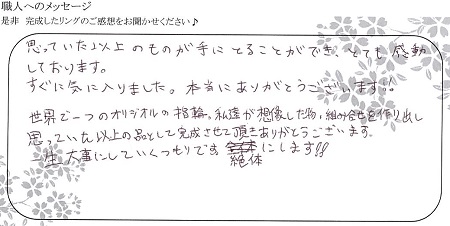 職人へのメッセージ
是非 完成したリングのご感想をお聞かせください♪
思っていた以上のものが手にとることができ、とても感動
しております。
すぐに気に入りました。本当にありがとうございます!!
世界で一つのオリジナルの指輪。私達が想像した物、組み合せを作り出し
思っていた以上の品として完成させて頂きありがとうございます。
一生大事にしていくつもりです にします!!
絶体